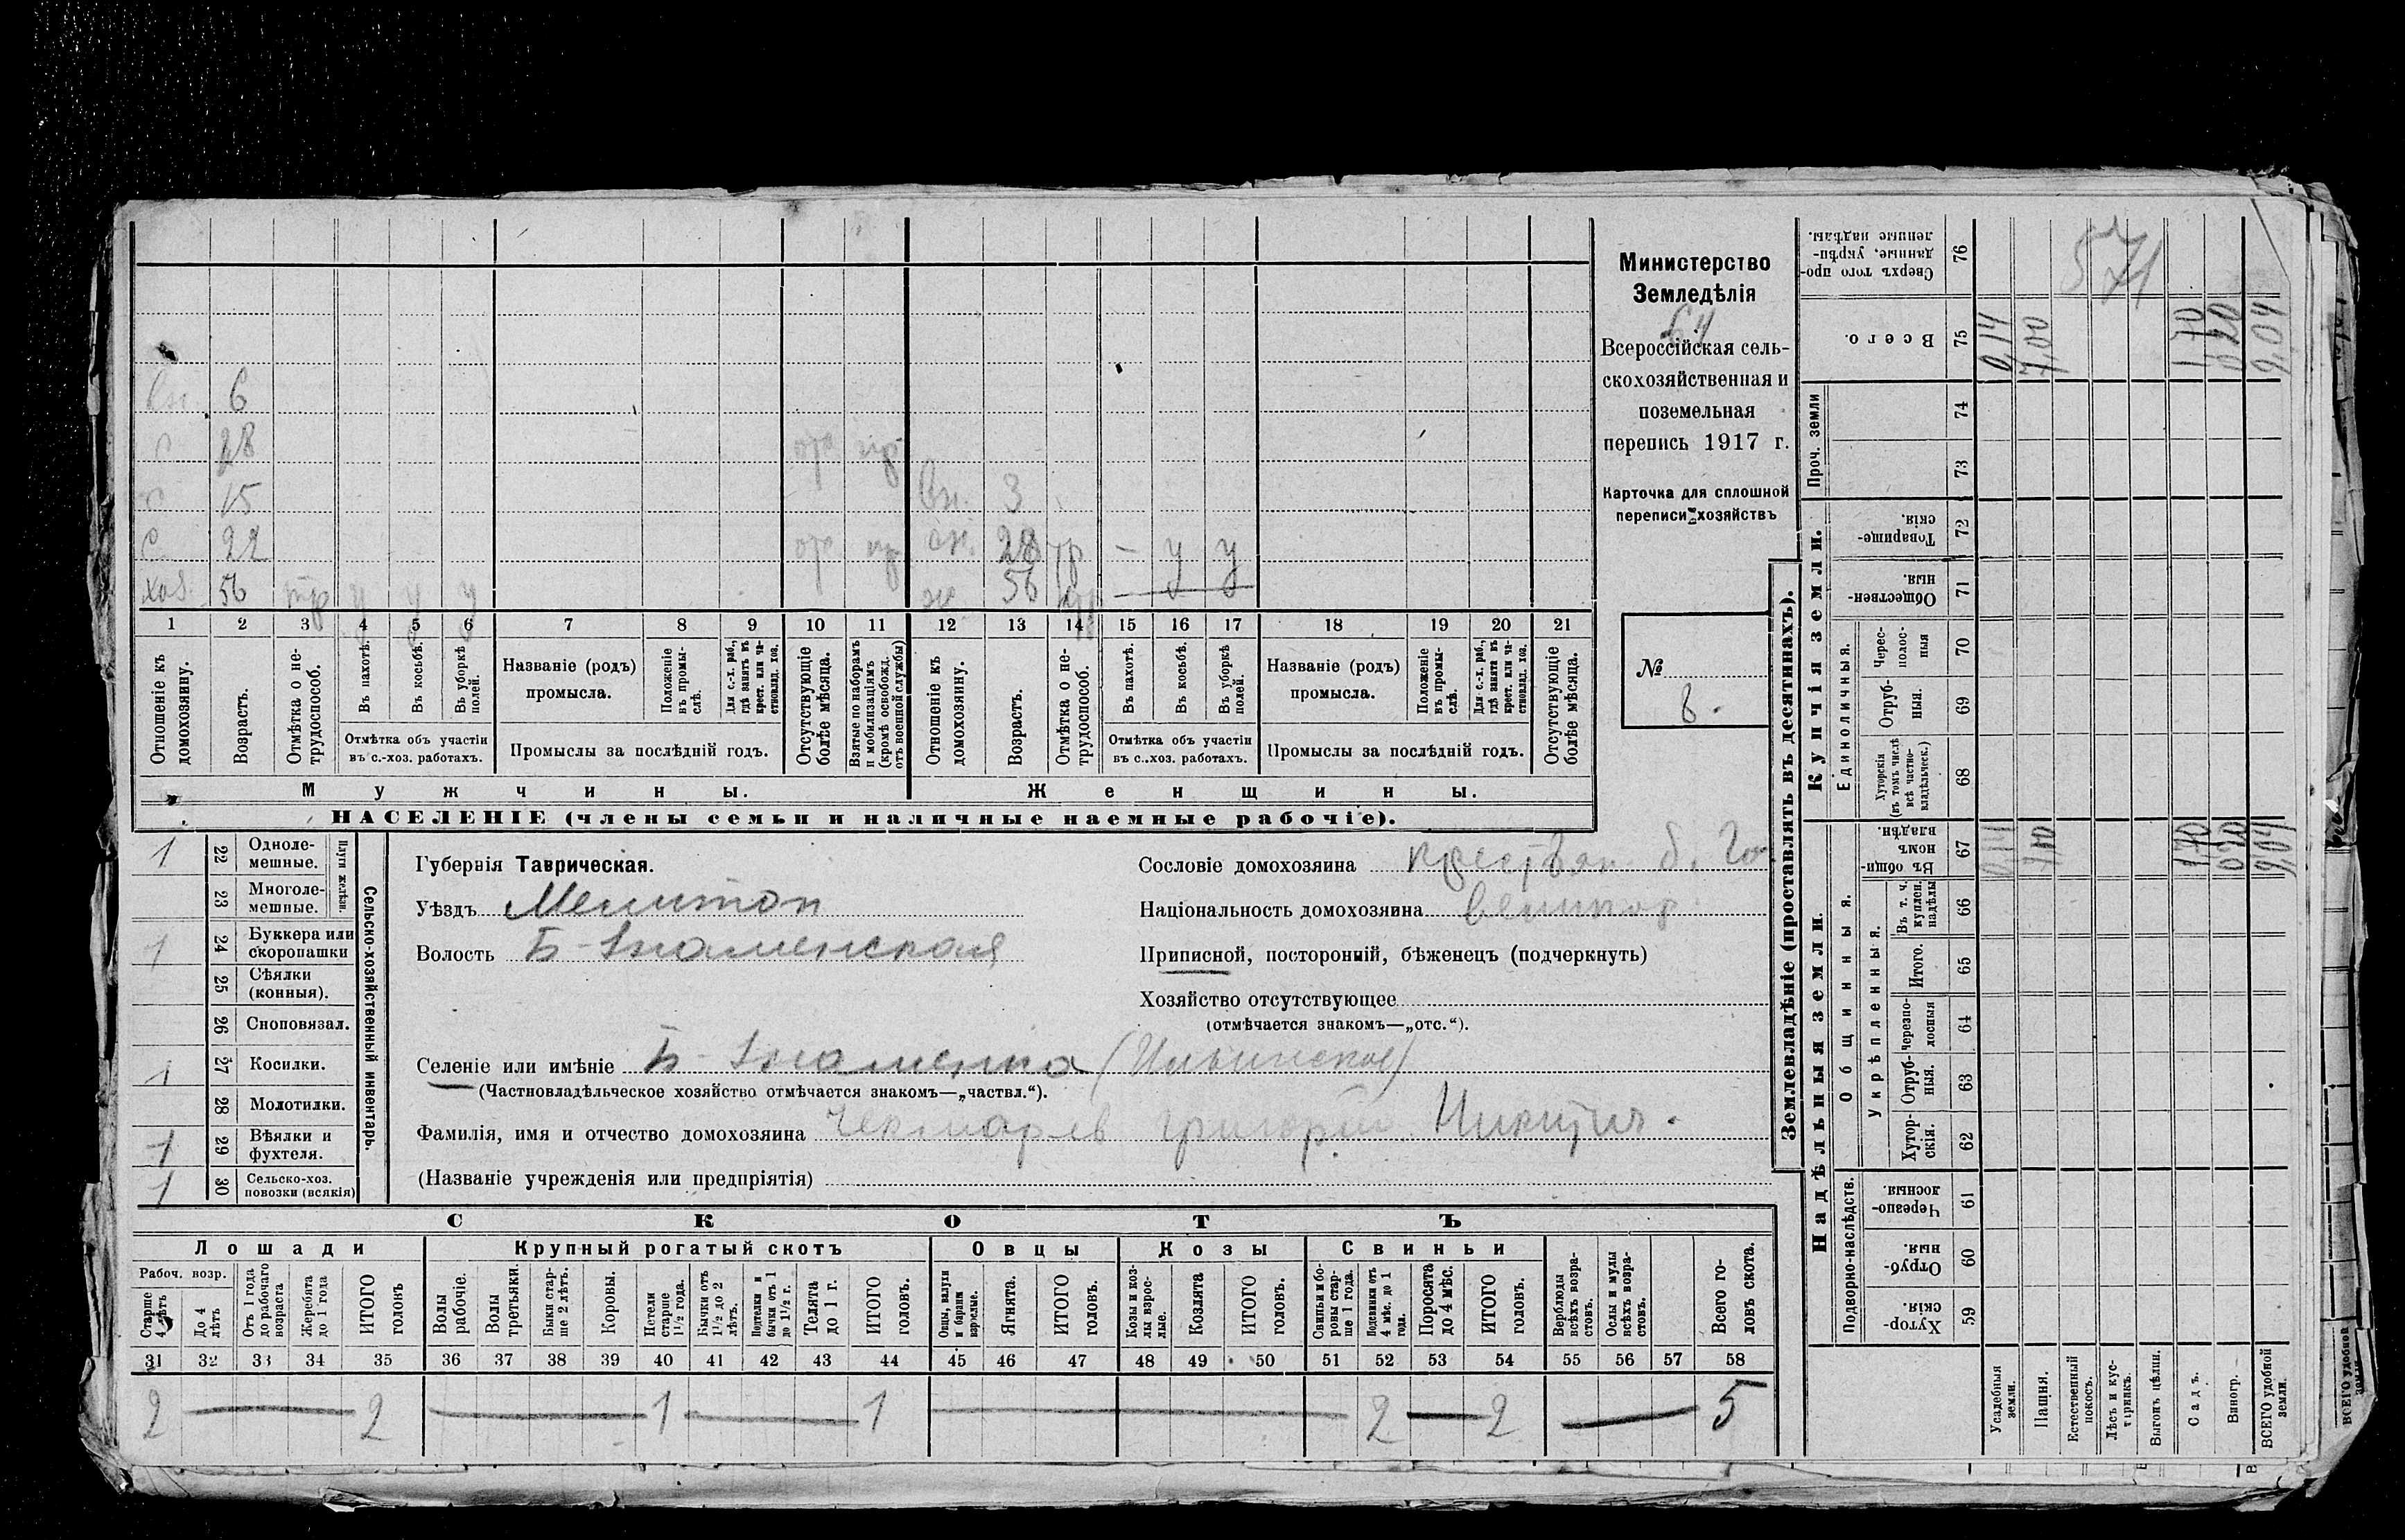 Министерство
Земледѣлія
64
Всероссійская сель-
скохозяйственная и
поземельная
перепись 1917 г.
Карточка для сплошной
переписи хозяйствъ
№
6.
вн. 6
с 28 отс пр
с 15 вн. 3
с 22 отс пр сн. 28 тр — у у
хоз. 56 тр у у у ж 56 тр
1 2 3 4 5 6 7 8 9 10 11 12 13 14 15 16 17 18 19 20 21
Отношеніе къ домохозяину.
Возрастъ.
Отмѣтка о не-трудоспособ.
Въ пахотѣ.
Въ косьбѣ.
Въ уборкѣ полей.
Отмѣтка объ участіи
въ с.-хоз. работахъ.
Названіе (родъ)
промысла.
Положеніе въ промы-слѣ.
Для с.-х. раб., гдѣ занятъ въ крест. или ча-стновлад. хоз.
Промыслы за послѣдній годъ.
Отсутствующіе болѣе мѣсяца.
Взятые по наборамъ и мобилизаціямъ (кромѣ освобожд. отъ военной службы)
Отношеніе къ домохозяину.
Возрастъ.
Отмѣтка о не-трудоспособ.
Въ пахотѣ.
Въ косьбѣ.
Въ уборкѣ полей.
Отмѣтка объ участіи
въ с..хоз. работахъ.
Названіе (родъ)
промысла.
Положеніе въ промы-слѣ.
Для с.-х. раб., гдѣ занята въ крест. или ча-стновлад. хоз.
Промыслы за послѣдній годъ.
Отсутствующіе болѣе мѣсяца.
Мужчины.
Женщины.
НАСЕЛЕНІЕ (члены семьи и наличные наемные рабочіе).
1 22 Одноле-мешные.
23 Многоле-мешные.
Плуги желѣзн.
1 24 Буккера или скоропашки
25 Сѣялки (конныя).
26 Сноповязал.
1 27 Косилки.
28 Молотилки.
1 29 Вѣялки и фухтеля.
1 30 Сельско-хоз. повозки (всякія)
Сельско-хозяйственный инвентарь.
Губернія Таврическая.
Уѣздъ Мелитоп
Волость Б-Знаменская
Селеніе или имѣніе Б-Знаменка (Ильинское)
(Частновладѣльческое хозяйство отмѣчается знакомъ—„частвл.“).
Фамилія, имя и отчество домохозяина Чекмарев Григорій Никитич.
(Названіе учрежденія или предпріятія)
Сословіе домохозяина крестьян. б.
Національность домохозяина великор.
Приписной, посторонній, бѣженецъ (подчеркнуть)
Хозяйство отсутствующее
(отмѣчается знакомъ—„отс.“).
СКОТЪ
Лошади
Крупный рогатый скотъ
Овцы
Козы
Свиньи
Рабоч. возр.
Старше 4 лѣтъ
До 4 лѣтъ
Отъ 1 года до рабочаго возраста
Жеребята до 1 года
ИТОГО головъ
Волы рабочіе.
Волы третьяки.
Быки стар-ше 2 лѣтъ.
Коровы.
Нетели старше 1½ года.
Бычки отъ 1½ до 2 лѣтъ.
Подтелки и бычки отъ 1 до 1½ г.
Телята до 1 г.
ИТОГО головъ.
Овцы, валухи и бараны взрослые.
Ягнята.
ИТОГО головъ.
Козы и коз-лы взрос-лые.
Козлята
ИТОГО головъ.
Свиньи и бо-ровы стар-ше 1 года.
Подсвинки отъ 4 мѣс. до 1 года.
Поросята до 4 мѣс.
ИТОГО головъ.
Верблюды всѣхъ возра-стовъ.
Ослы и мулы всѣхъ возра-стовъ.
Всего го-ловъ скота.
31 32 33 34 35 36 37 38 39 40 41 42 43 44 45 46 47 48 49 50 51 52 53 54 55 56 57 58
2 — 2 — 1 — 1 — 2 — 2 — 5
Землевладѣніе (проставлять въ десятинахъ).
Купчія земли.
Надѣльныя земли.
Сверхъ того про-данные, укрѣп-ленные надѣлы. 76
571
Всего. 75 0,14 7,00 1,70 0,20 9,04
Проч. земли 74
73
Товарище-скія. 72
Обществен-ныя. 71
Единоличныя.
Черес-полос-ныя 70
Отруб-ныя. 69
Хуторскія (въ томъ числѣ всѣ частно-владѣльческ.) 68
Общинныя.
Въ общи-номъ владѣн. 67 0,14 7,00 1,70 0,20 9,04
Укрѣпленныя.
Въ т. ч. куплен. надѣлы 66
Итого. 65
Черезпо-лосныя 64
Отруб-ныя. 63
Хутор-скія. 62
Подворно-наслѣдств.
Черезпо-лосныя. 61
Отруб-ныя. 60
Хутор-скія. 59
Усадебныя земли.
Пашня.
Естественный покосъ.
Лѣсъ и кус-тарникъ.
Выгонъ цѣлин.
Садъ.
Виногр.
ВСЕГО удобной земли.
ВСЕГО удобной